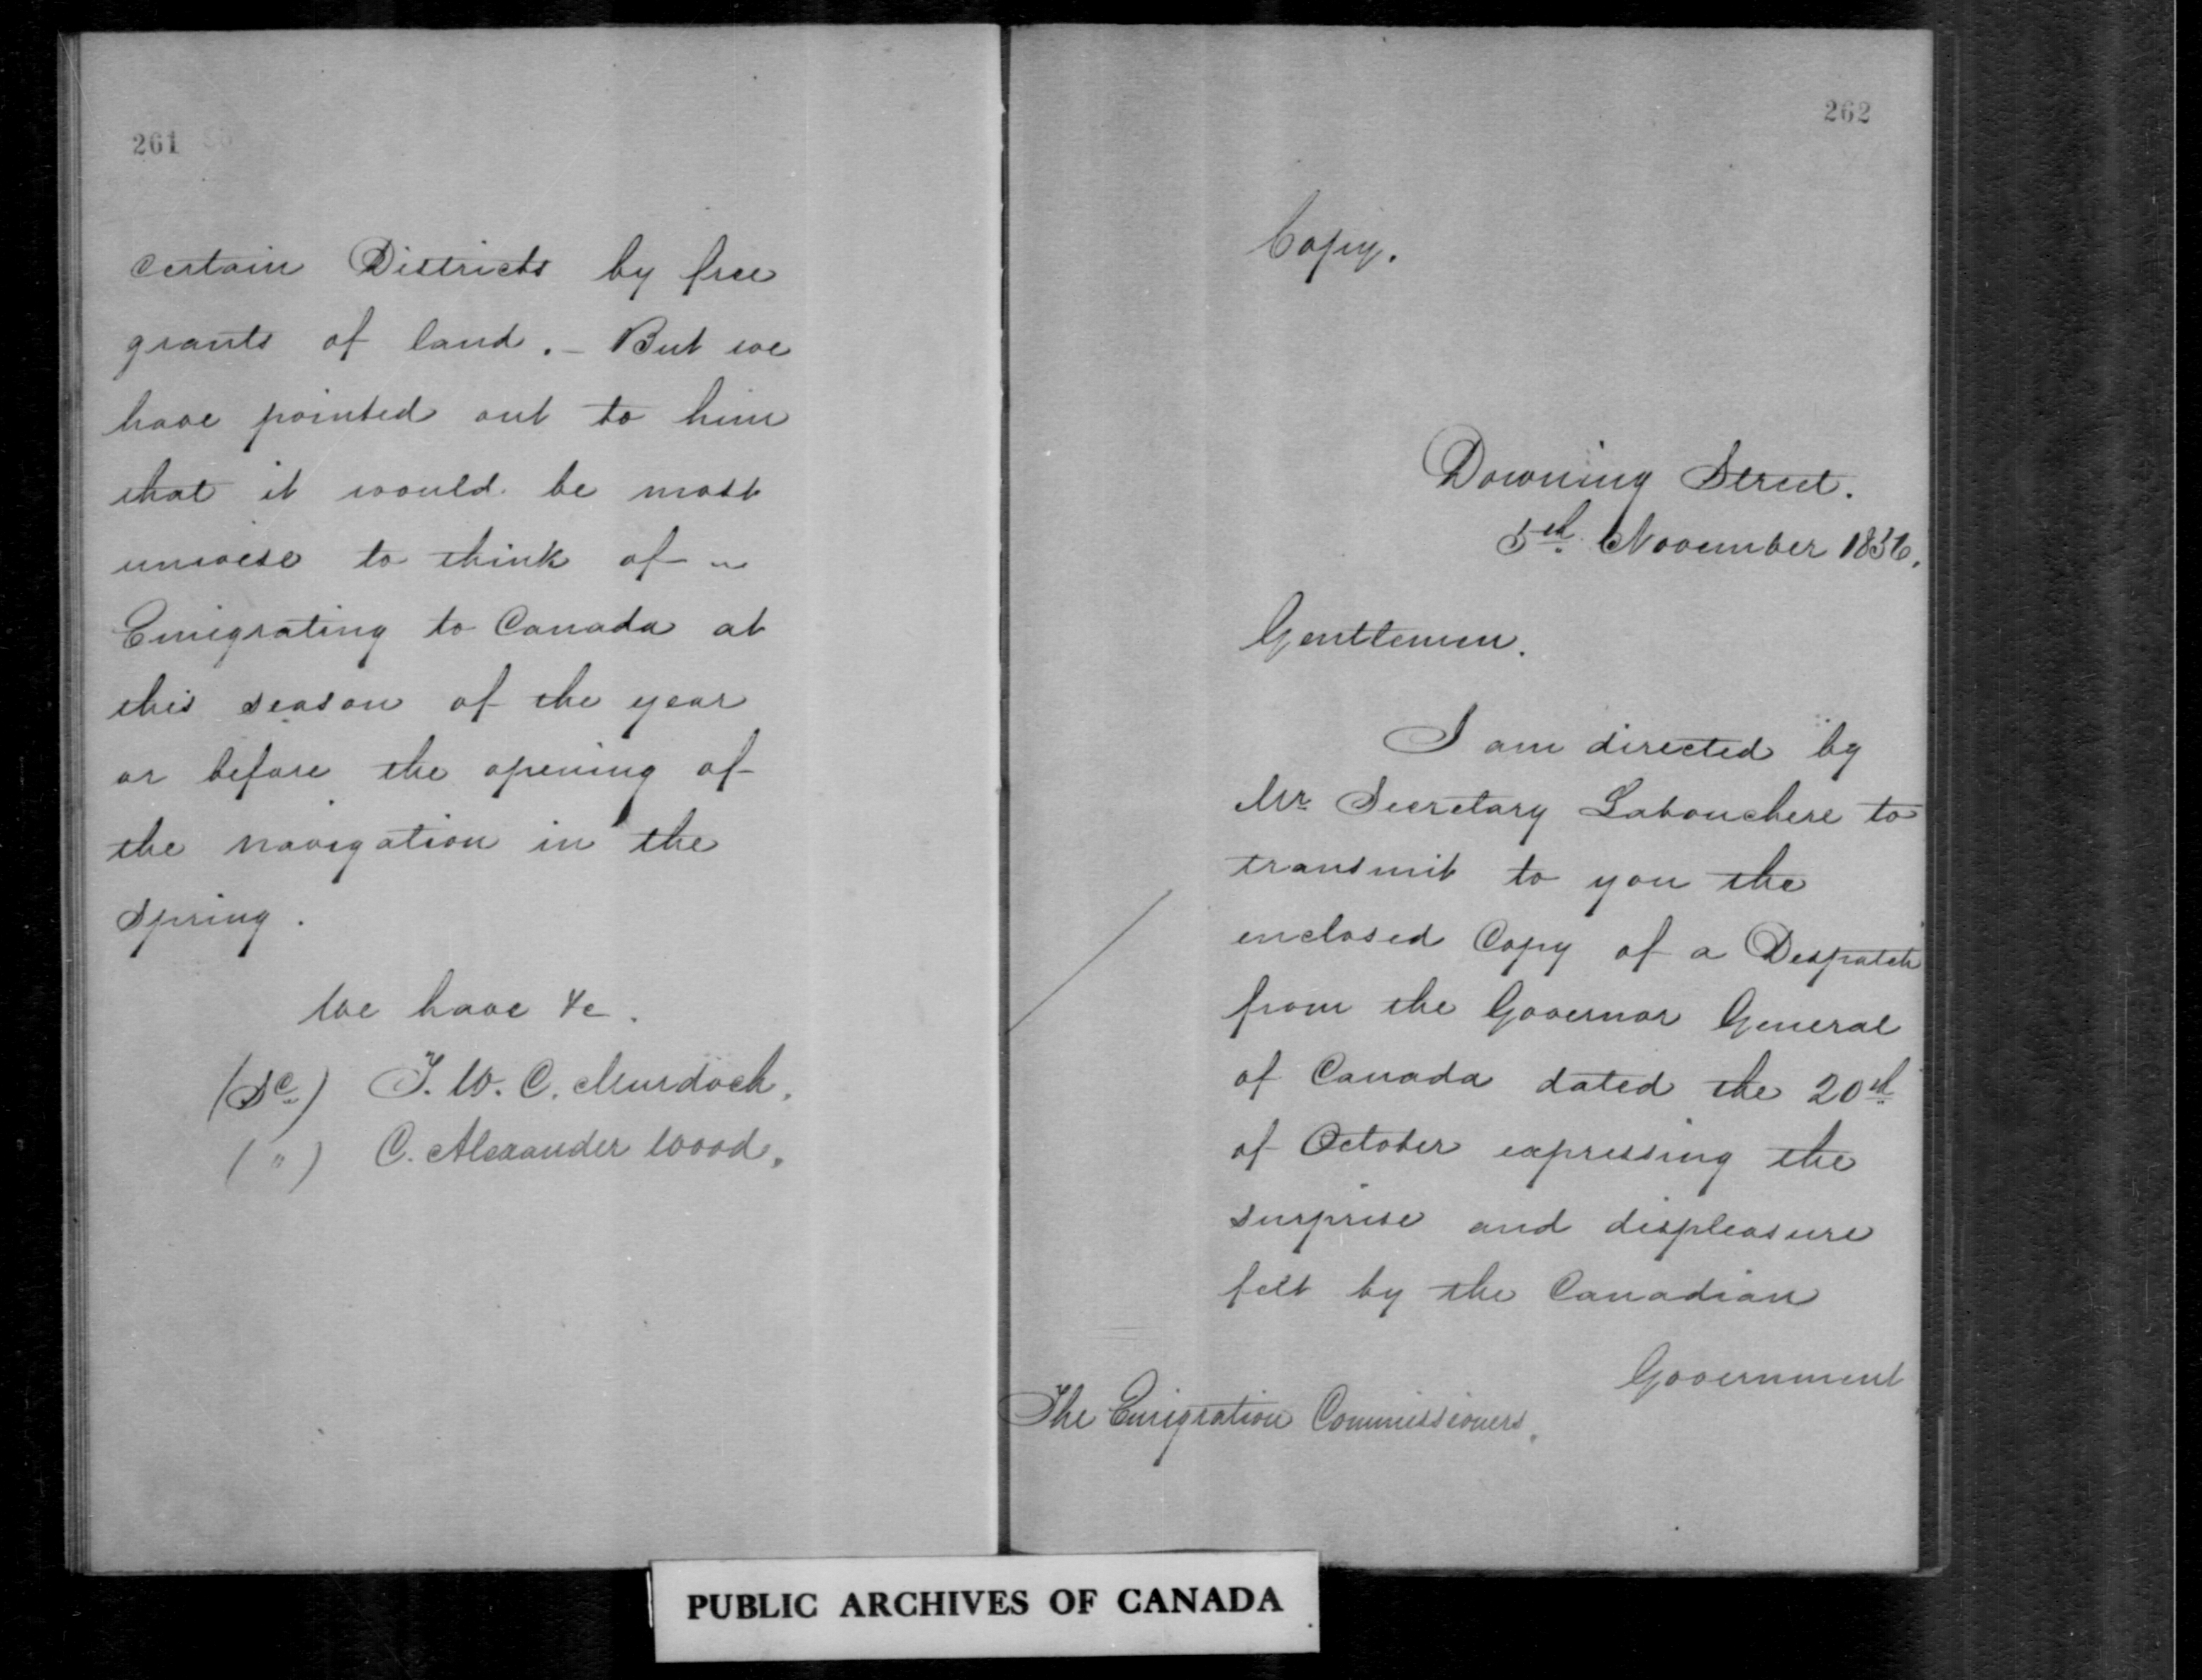 261
certain Districts by free
grants of land. – But we
have pointed out to him
that it would be most
unwise to think of
Emigrating to Canada at
this season of the year
or before the opening of
the navigation in the
spring.
We have &c.
(Sd) T. W. C. Murdoch.
( " ) C. Alexander Wood.
262
Copy.
Downing Street.
5th November 1856.
Gentlemen.
I am directed by
Mr Secretary Labouchere to
transmit to you the
enclosed Copy of a Despatch
from the Governor General
of Canada dated the 20th
of October expressing the
surprise and displeasure
felt by the Canadian
Government
The Emigration Commissioners.
PUBLIC ARCHIVES OF CANADA